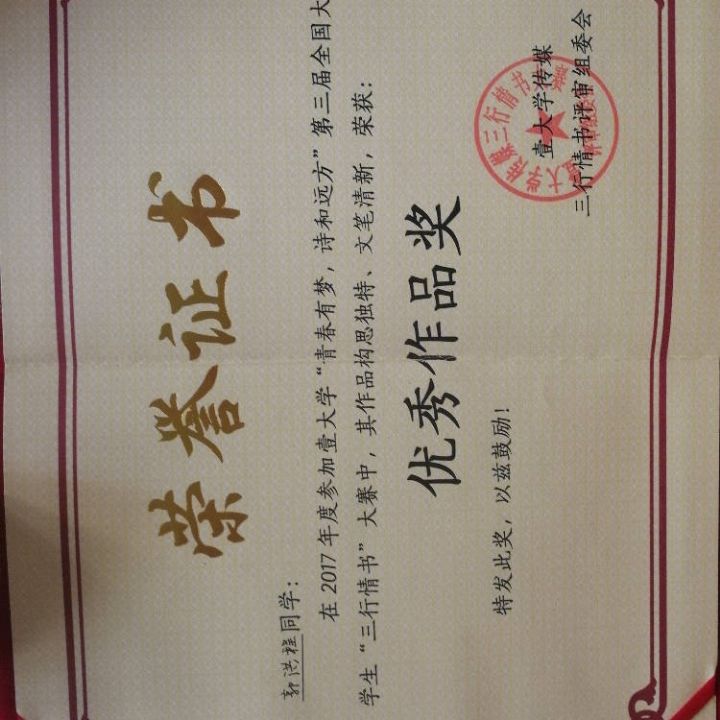 荣誉证书
郭洪程同学：
在2017年度参加壹大学“青春有梦，诗和远方”第三届全国大
学生“三行情书”大赛中，其作品构思独特、文笔清新，荣获：
优秀作品奖
特发此奖，以兹鼓励！
壹大学传媒
三行情书评审组委会